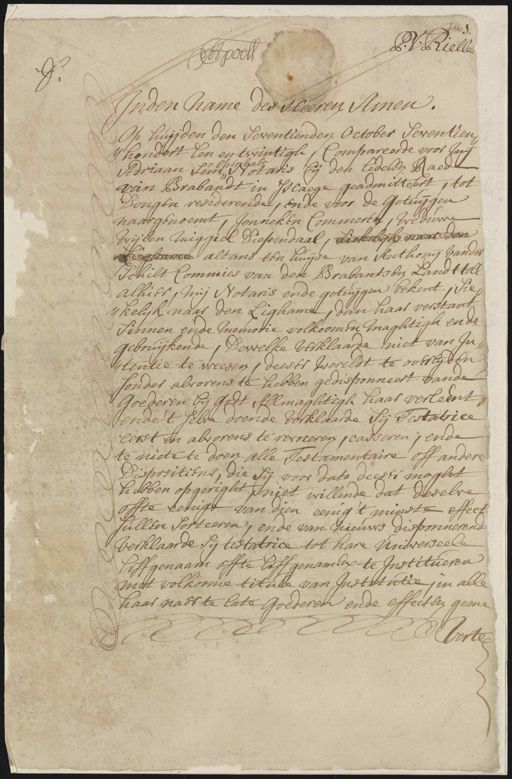 P. V. Rielle
In den Name des Heeren Amen.
Op huijden den Seventienden October Seventien
hondert Een en twintigh, Compareerde voor mij
Adriaan Notaris bij den Edelen Raed
van Brabandt in s'Haege geadmitteert, tot
Dongen resideerende, ende voor de getuijgen
naergenoemt, Jenneken Commers, weduwe
wijlen Miggiel Diependael,
altans ten huijse van Anthony vander
Schilt Commies van den Brabantsen Landtoll
alhier, mij Notaris ende getuijgen bekent, Sie-
kelijk naer den Lighame, dan haer verstant
Sinnen ende Memorie volkoomen maghtigh ende
gebruijkende, Dewelke verklaerde niet van In-
tentie te weesen, deese Wereldt te overlyden
sonder alvorens te hebben gedisponeert vande
Goederen bij Godt Allmaghtigh haer verleent,
ende 't selve doende verklaerde Sij Testatrice
eerst en alvorens te revoceren, casseren, ende
te niete te doen alle Testamentaire off andere
Dispositien, die Sij voor dato deeses moght
hebben opgeright, niet willende dat deselve
offte eenige van dien eenig't minste effect
sullen Sorteeren, ende van nieuws disponeerende
verklaerde Sij testatrice tot hare Universeele
Erffgenaem offte Erffgenamen te Institueren
met volkome titule van Institutie, in alle
haer naer te late Goederen ende effecten geene
Verte